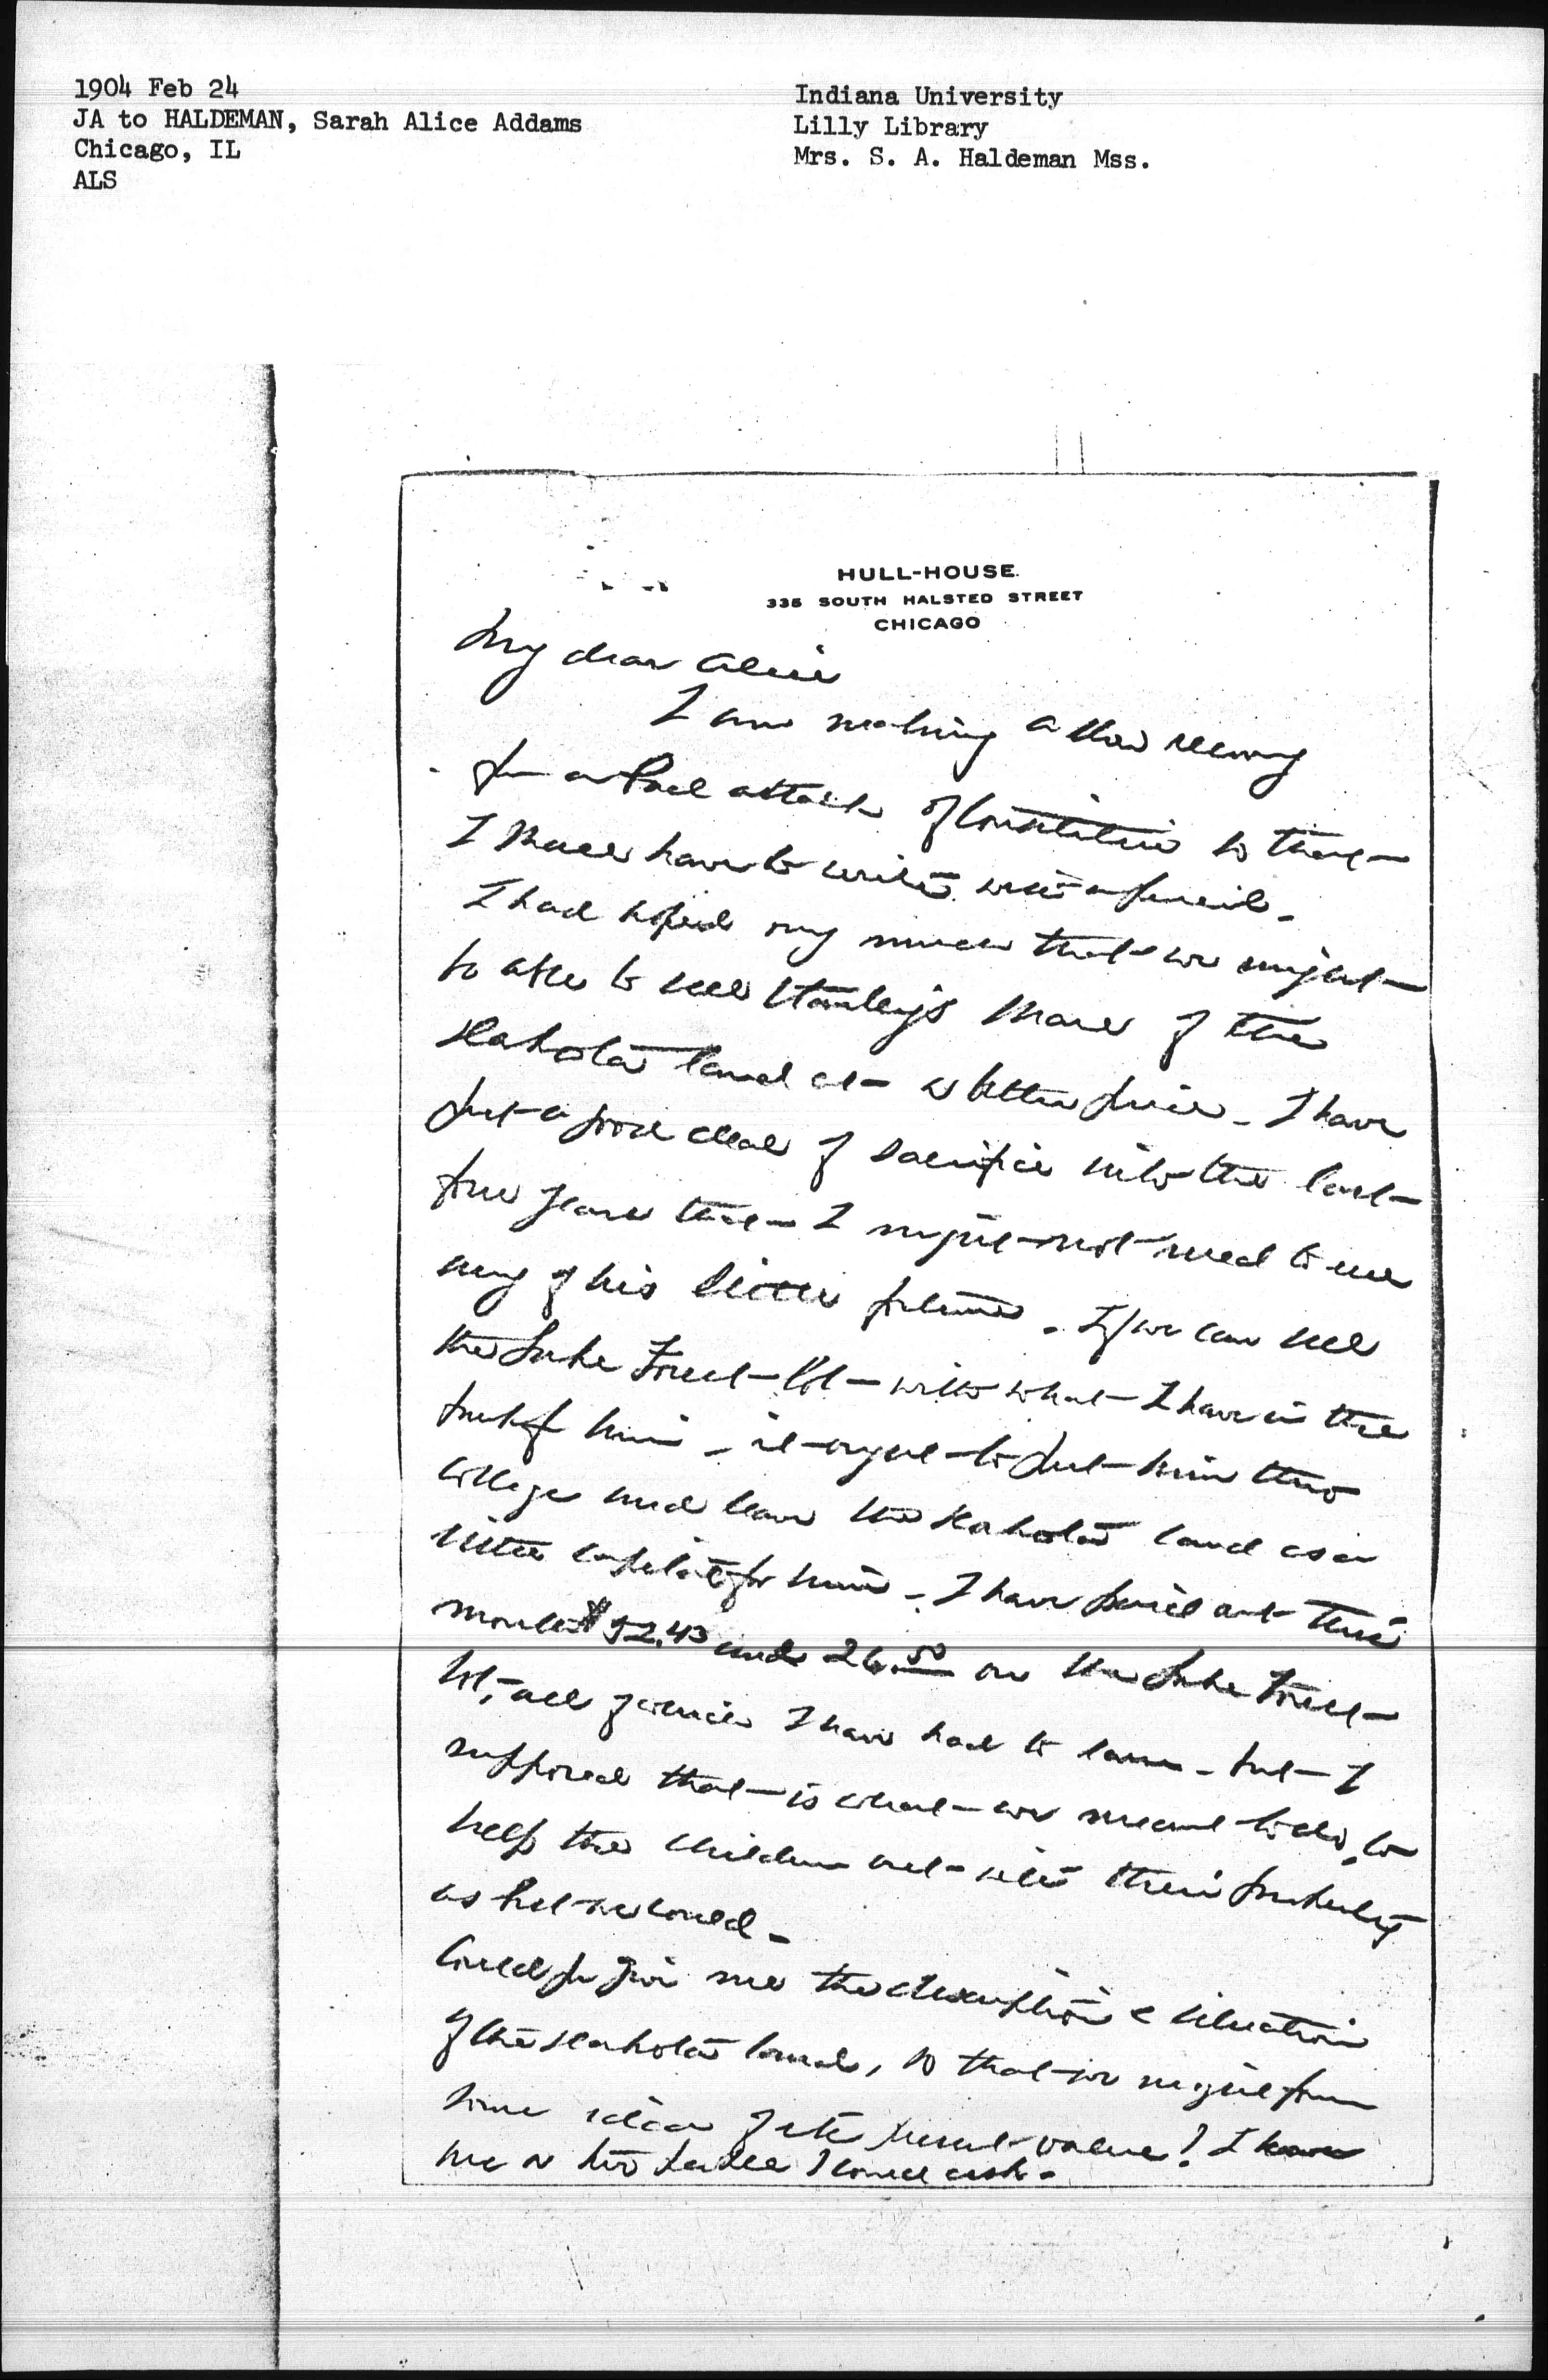 1904 Feb 24
JA to HALDEMAN, Sarah Alice Addams
Chicago, IL
ALS
Indiana University
Lilly Library
Mrs. S. A. Haldeman Mss.
HULL-HOUSE.
335 SOUTH HALSTED STREET
CHICAGO
My dear Alice
I am making a slow recovery
from a bad attack of so that
I shall have to write with a pencil.
I had hoped very much that we might
be able to sell Stanley's share of the
Dakota land at a better price. I have
put a good deal of sacrifice into the last
few years that I might not need to use
any of his little patrimony. If we can sell
the Lake Forest lot with what I have in the
bank for him it ought to put him thro
college and leave the Dakota land as a
little capital for him. I have paid out this
month $52.43 and 26.50 on the Lake Forest
lot, all of which I have had to earn but I
supposed that is what we meant to do, to
help the children out with their property
as best we could.
Could you give me the description & situation
of the Dakota land, so that we might form
some idea of its present value? I have
one or two people I could ask.